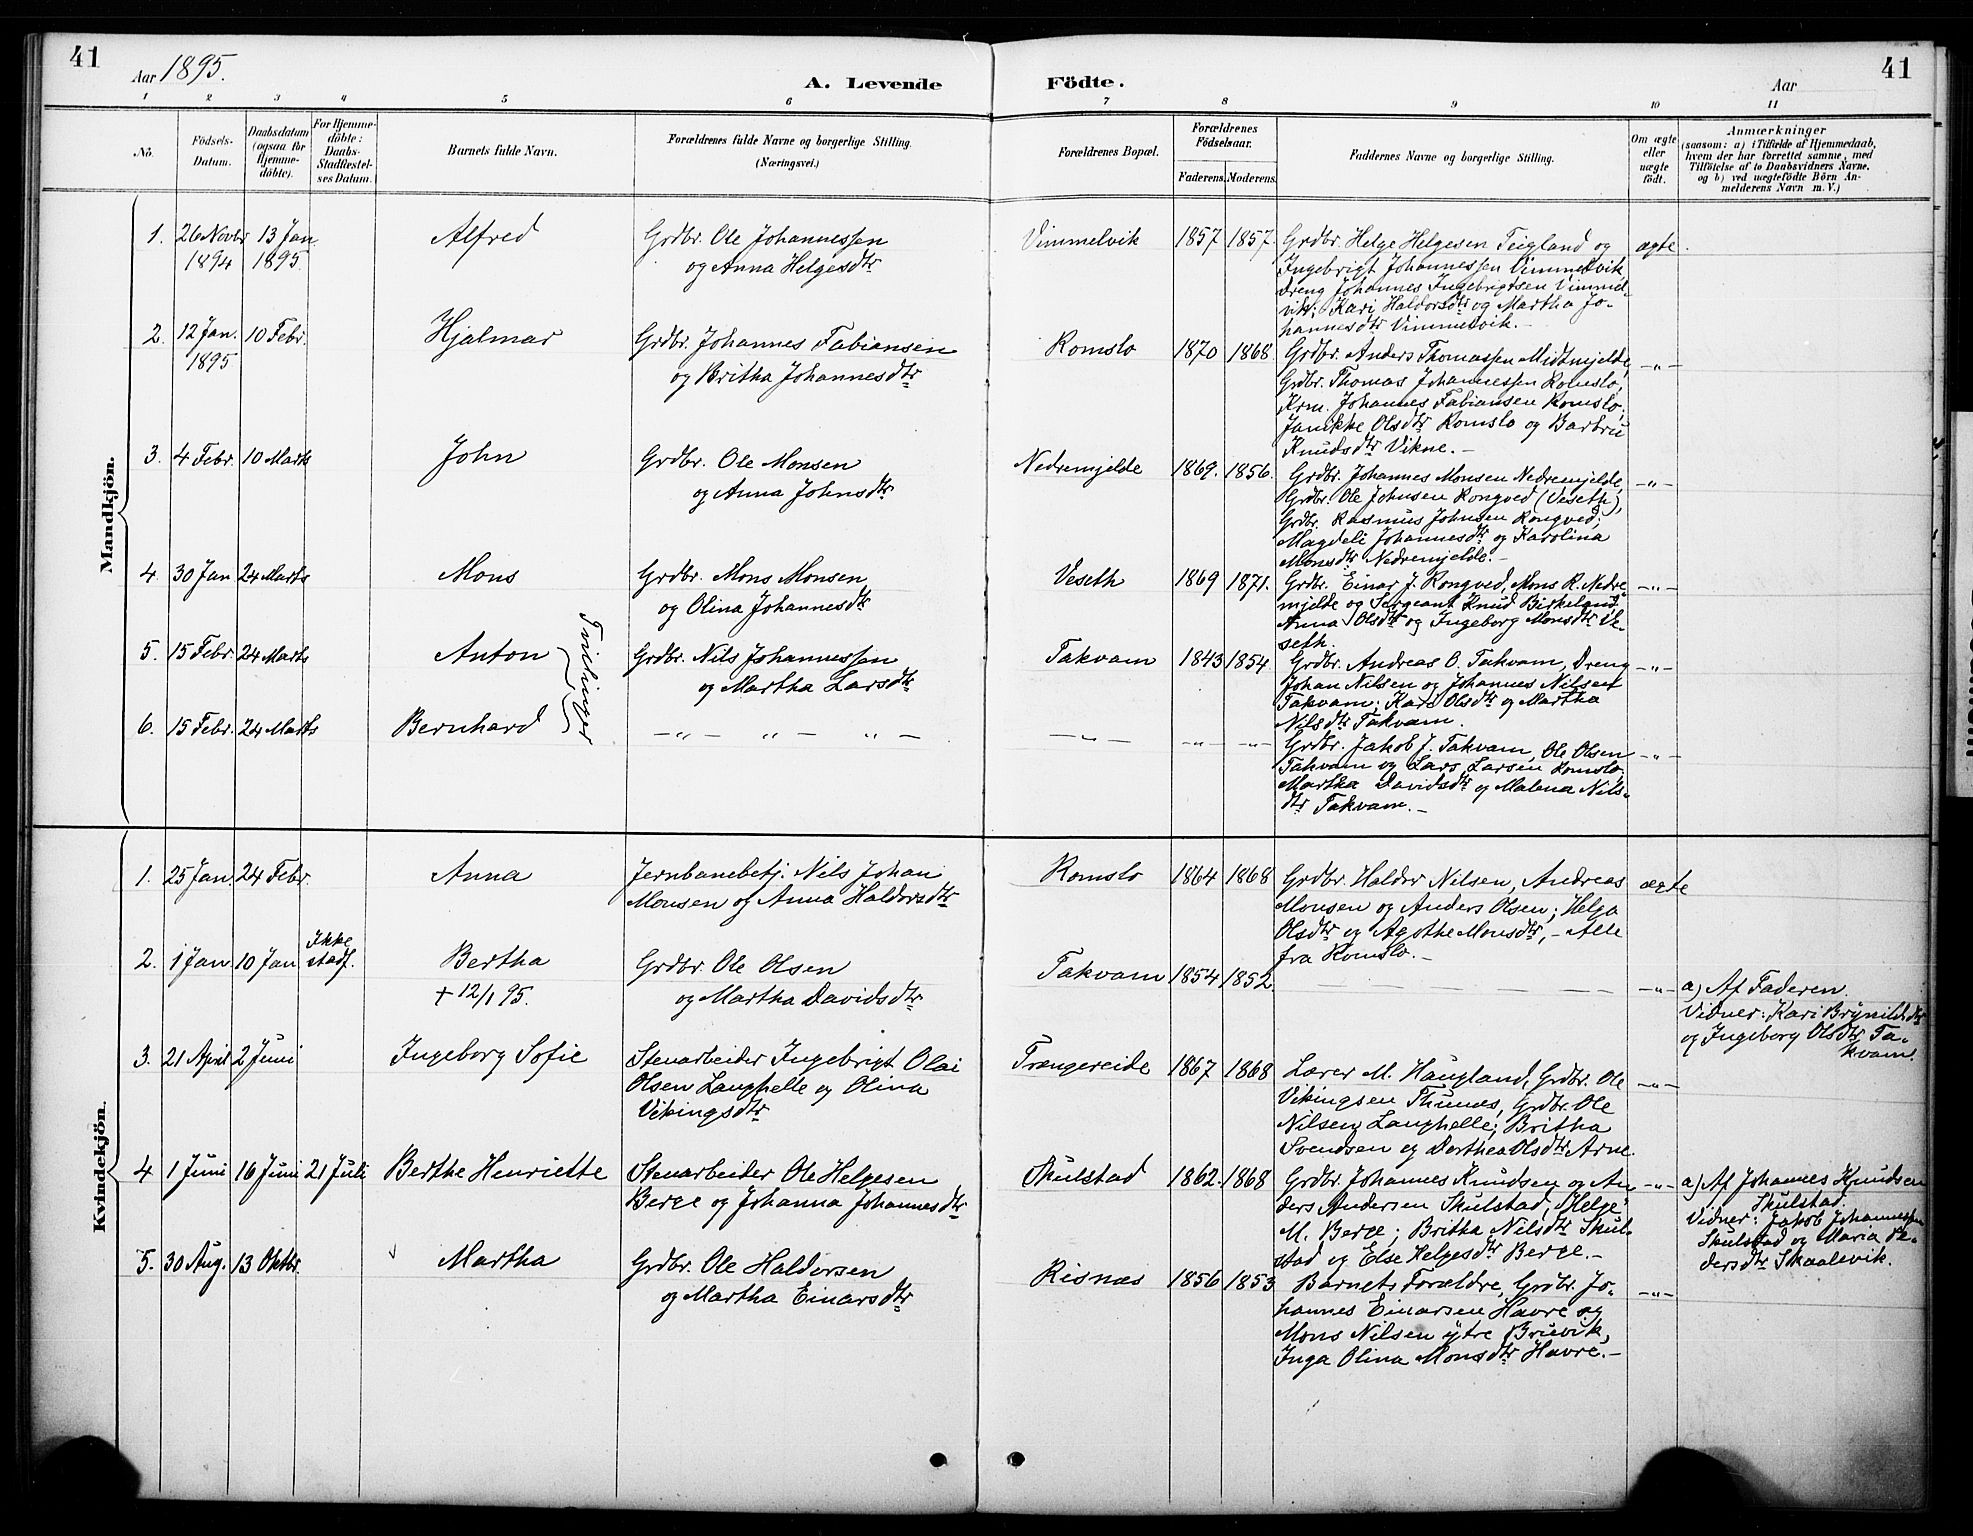 41
Aar 1895.
A. Levende Födte.
Aar
41
1 2 3 4 5 6 7 8 9 10 11
No.
Födsels-Datum.
Daabsdatum (ogsaa for Hjemme-döbte).
For Hjemme-döbte: Daabs-Stadfæstel-ses Datum.
Barnets fulde Navn.
Forældrenes fulde Navne og borgerlige Stilling. (Næringsvei.)
Forældrenes Bopæl.
Forældrenes Födselsaar.
Faderens. Moderens.
Faddernes Navne og borgerlige Stilling.
Om ægte eller uægte födt.
Anmærkninger
(saasom: a) i Tilfælde af Hjemmedaab, hvem der har forrettet samme, med Tilföielse af to Daabsvidners Navne, og b) ved uægtefödte Börn An-melderens Navn m. V.)
Mandkjön.
1. 26 Novbr 1894 13 Jan 1895. Alfred
Grdbr. Ole Johannessen
og Anna Helgesdtr
Vimmelvik 1857 1857.
Grdbr. Helge Helgesen Teigland og
Ingebrigt Johannessen Vimmelvik,
Dreng Johannes Ingebrigtsen Vimmel-
vik; Kari Haldorsdtr og Martha Jo-
hannesdtr Vimmelvik.-
ægte.
2. 12 Jan. 1895 10 Febr. Hjalmar
Grdbr. Johannes Fabiansen
og Britha Johannesdtr
Romslo 1870 1868
Grdbr. Anders Thomassen Midtmjelde,
Grdbr. Thomas Johannessen Romslo,
Krm. Johannes Fabiansen Romslo;
Janikke Olsdtr Romslo og Barbru
Knudsdtr Vikne.-
-"-
3. 4 Febr. 10 Marts John
Grdbr. Ole Monsen
og Anna Johnsdtr
Nedremjelde 1869. 1856.
Grdbr. Johannes Monsen Nedremjelde,
Grdbr. Ole Johnsen Rongved (Veseth),
Grdbr. Rasmus Johnsen Rongved;
Magdeli Johannesdtr og Karolina
Monsdtr Nedremjelde.-
-"-
4. 30 Jan 24 Marts Mons
Grdbr. Mons Monsen
og Olina Johannesdtr
Veseth 1869 1871.
Grdbr. Einar J. Rongved, Mons R. Nedre-
mjelde og Sergeant Knud Birkeland,
Anna Olsdtr og Ingeborg Monsdtr Ve-
seth.
-"-
5. 15 Febr 24 Marts Anton
Tvillinger
Grdbr. Nils Johannessen
og Martha Larsdtr
Takvam 1843 1854.
Grdbr. Andreas O. Takvam, Dreng
Johan Nilsen og Johannes Nilsen
Takvam; Kari Olsdtr og Martha
Nilsdtr Takvam.
-"-
6. 15 Febr. 24 Marts Bernhard
-"- "- "-
-"- -"- -"-
Grdbr. Jakob J. Takvam, Ole Olsen
Takvam og Lars Larsen Romslo;
Martha Davidsdtr og Malena Nils-
dtr Takvam.-
-"-
Kvindekjön.
1. 25 Jan. 24 Febr. Anna
Jernbanebetj. Nils Johan
Monsen og Anna Haldorsdtr
Romslo 1864 1868
Grdbr. Haldor Nilsen, Andreas
Monsen og Anders Olsen; Helga
Olsdtr og Agothe Monsdtr, - Alle
fra Romslo.-
ægte
2. 1 Jan 10 Jan Ikke stadf. Bertha
+ 12/1 95.
Grdbr. Ole Olsen
og Martha Davidsdtr
Takvam 1854 1852.
-"-
a) Af Faderen.
Vidner: Kari Brynildsdtr
og Ingeborg Olsdtr Ta-
kvam.
3. 21 April 2 Juni Ingeborg Sofie
Stenarbeider Ingebrigt Olai
Olsen Langhelle og Olina
Vikingsdtr
Trængereide 1867 1868
Lærer M. Haugland, Grdbr. Ole
Vikingsen Thunæs, Grdbr. Ole
Nilsen Langhelle; Britha
Svendsen og Dorthea Olsdtr Arne
-"-
4 1 Juni 16 Juni 21 Juli Berthe Henriette
Stenarbeider Ole Helgesen
Berge og Johanna Johannesdtr
Skulstad 1862. 1868
Grdbr. Johannes Knudsen og An-
ders Andersen Skulstad, Helge
M. Berge; Britha Nilsdtr Skul-
stad og Else Helgesdtr Berge.-
-"-
a) Af Johannes Knudsen
Skulstad.
Vidner: Jakob Johannessen
Skulstad og Maria Pe-
dersdtr Skaalevik.
5. 30 Aug. 13 Oktbr. Martha
Grdbr. Ole Haldorsen
og Martha Einarsdtr
Risnæs 1856 1853
Barnets Forældre, Grdbr. Jo-
hannes Einarsen Havre og
Mons Nilsen ytre Bruvik,
Inga Olina Monsdtr Havre.-
-"-